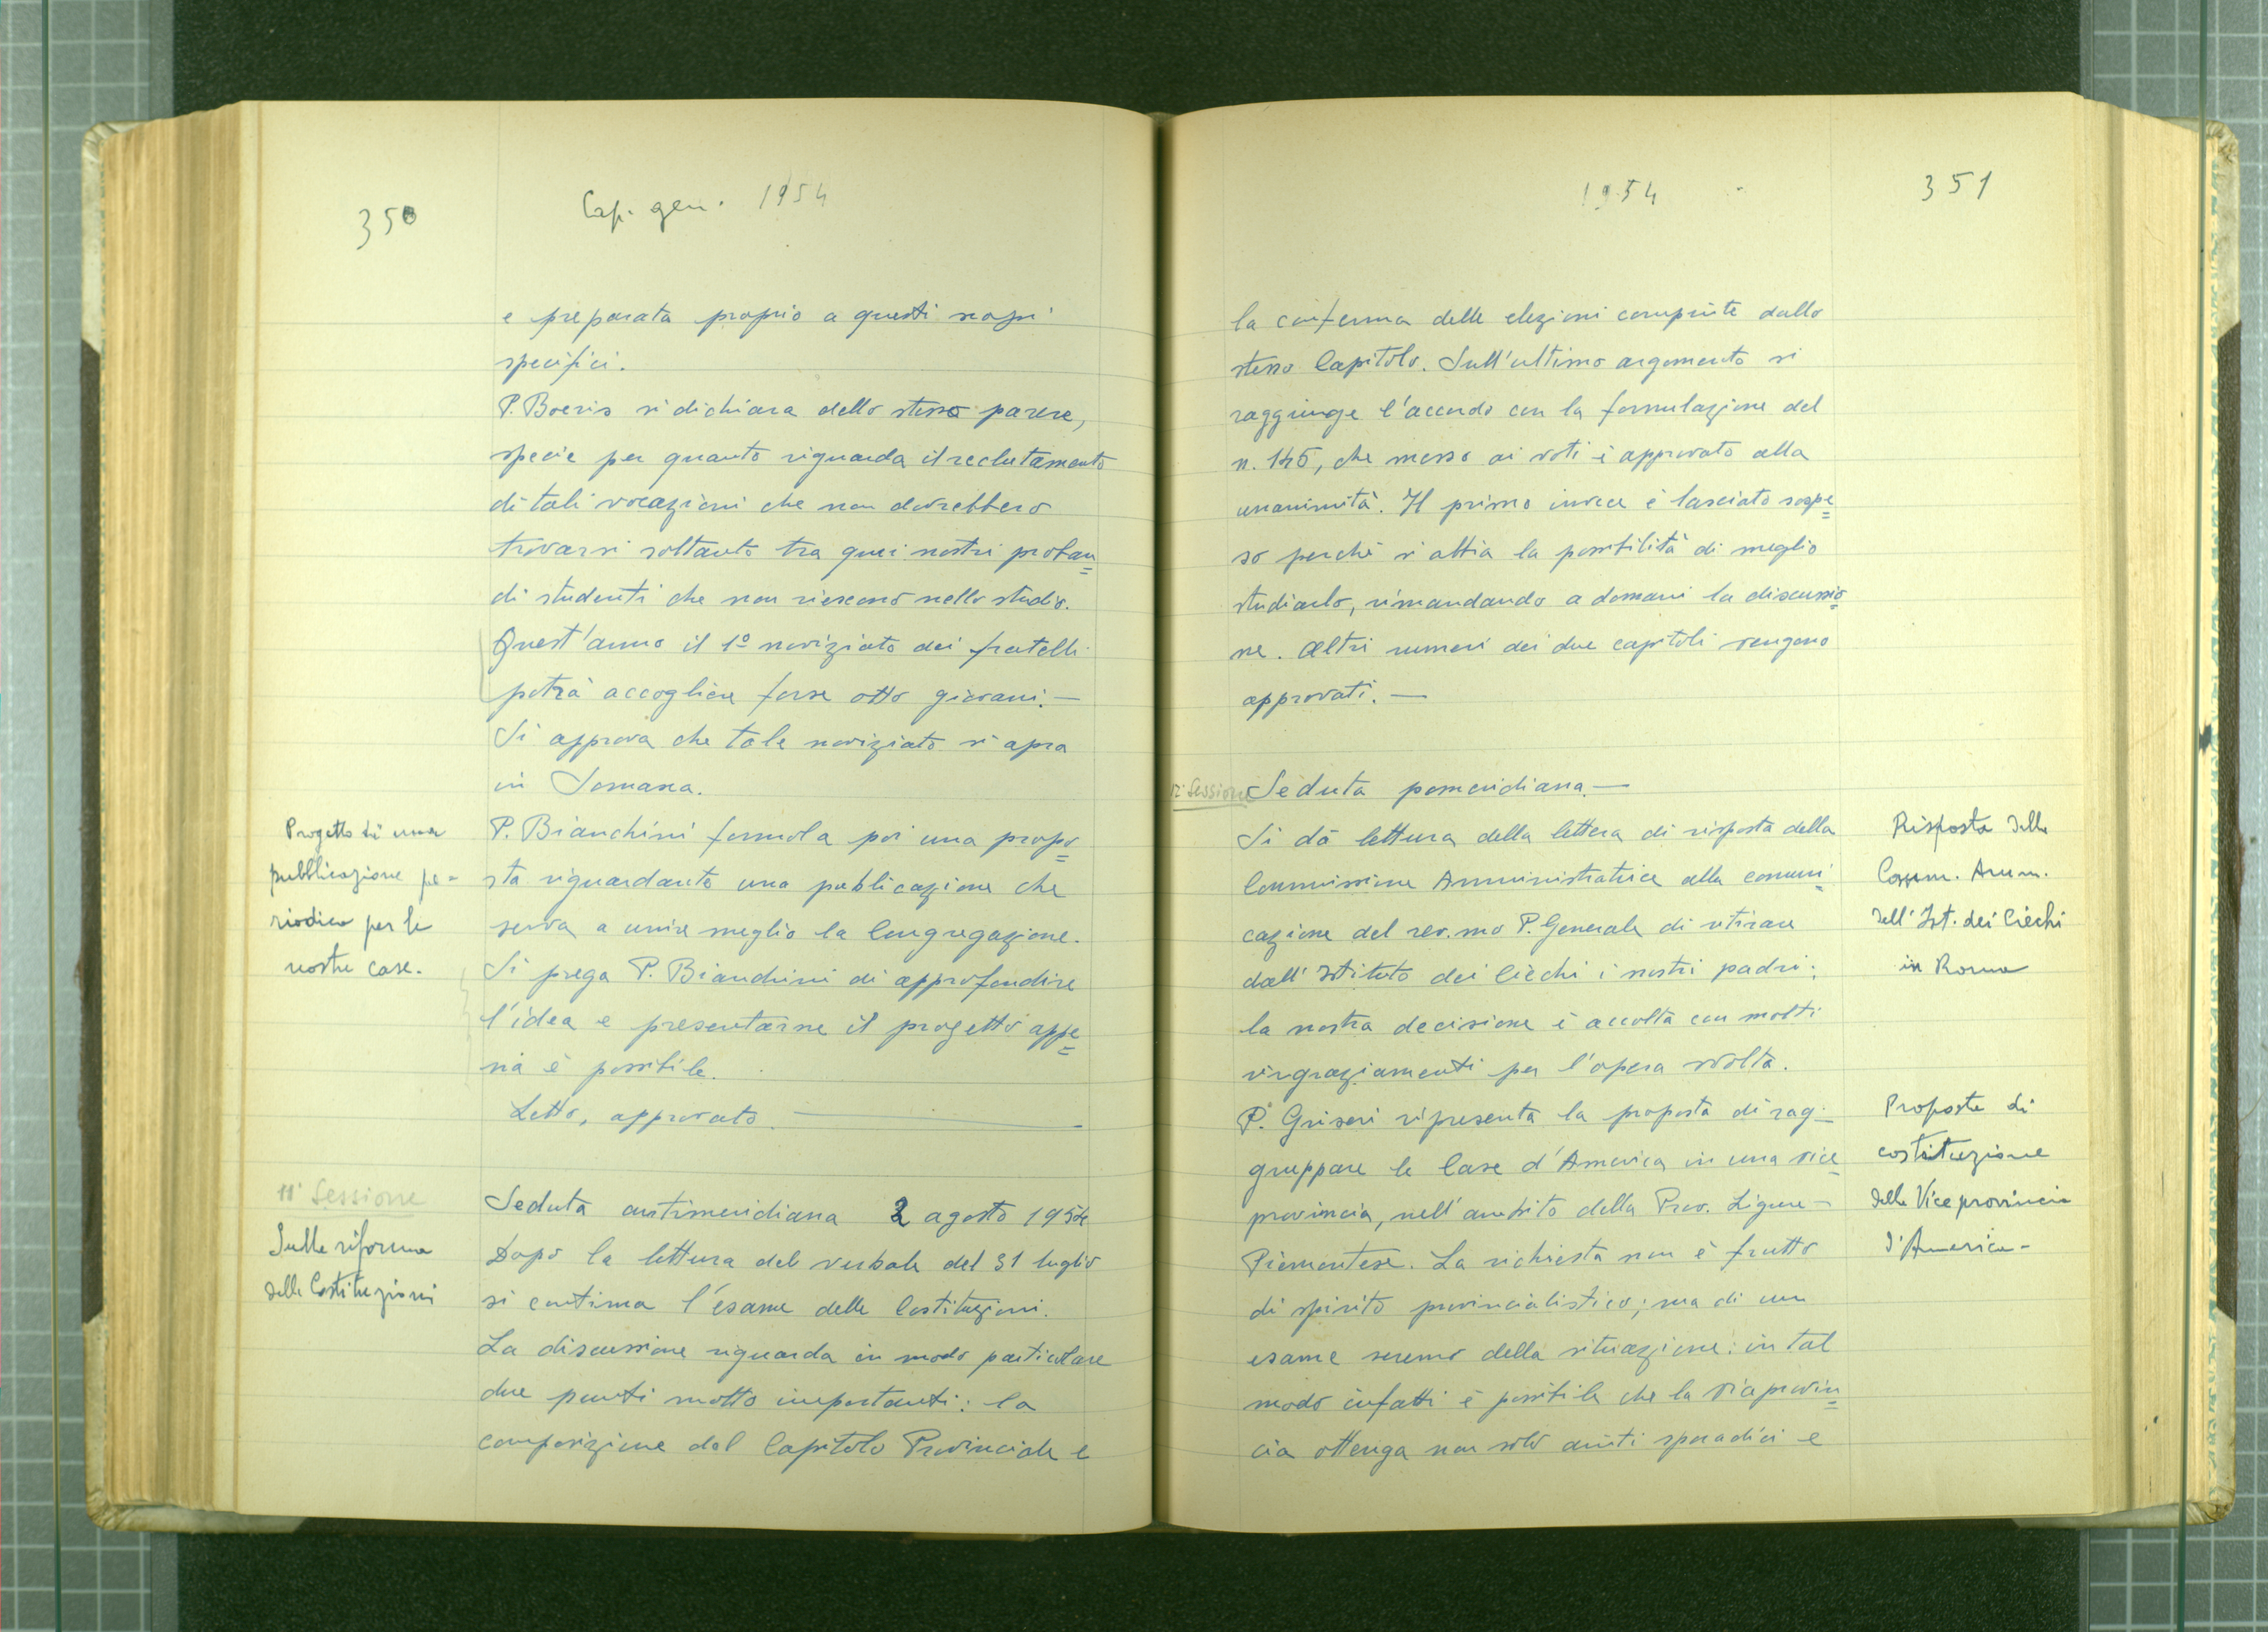 350
Cap. gen. 1954
e preparata proprio a questi scopi
specifici.
P. Boeris si dichiara dello stesso parere,
specie per quanto riguarda il reclutamento
di tali vocazioni che non dovrebbero
trovarsi soltanto tra quei nostri proban=
di studenti che non riescono nello studio.
Quest'anno il 1º noviziato dei fratelli
potrà accogliere forse otto giovani.—
Si approva che tale noviziato si apra
in Somasca.
Progetto di una
pubblicazione pe=
riodica per le
nostre case.
P. Bianchini formola poi una propo=
sta riguardante una publicazione che
serva a unire meglio la Congregazione.
Si prega P. Bianchini di approfondire
l'idea e presentarne il progetto appe=
na è possibile.
Letto, approvato.—
11ª Sessione
Sulla riforma
delle Costituzioni
Seduta antimeridiana 2 agosto 1954
Dopo la lettura del verbale del 31 luglio
si continua l'esame delle Costituzioni.
La discussione riguarda in modo particolare
due punti molto importanti: la
composizione del Capitolo Provinciale e
1954
351
la conferma delle elezioni compiute dallo
stesso Capitolo. Sull'ultimo argomento si
raggiunge l'accordo con la formulazione del
n. 145, che messo ai voti è approvato alla
unanimità. Il primo invece è lasciato sospe=
so perchè si abbia la possibilità di meglio
studiarlo, rimandando a domani la discussio=
ne. Altri numeri dei due capitoli vengono
approvati.—
12ª Sessione
Seduta pomeridiana.—
Si dà lettura della lettera di risposta della
Commissione Amministratrice alla comuni=
cazione del rev.mo P. Generale di ritirare
dall'Istituto dei Ciechi i nostri padri:
la nostra decisione è accolta con molti
ringraziamenti per l'opera svolta.
Risposta della
Comm. Amm.
dell'Ist. dei Ciechi
in Roma
P. Griseri ripresenta la proposta di rag-
gruppare le Case d'America in una vice=
provincia, nell'ambito della Prov. Ligure-
Piemontese. La richiesta non è frutto
di spirito provincialistico; ma di un
esame sereno della situazione: in tal
modo infatti è possibile che la viceprovin=
cia ottenga non solo aiuti sporadici e
Proposta di
costituzione
della Viceprovincia
d'America-